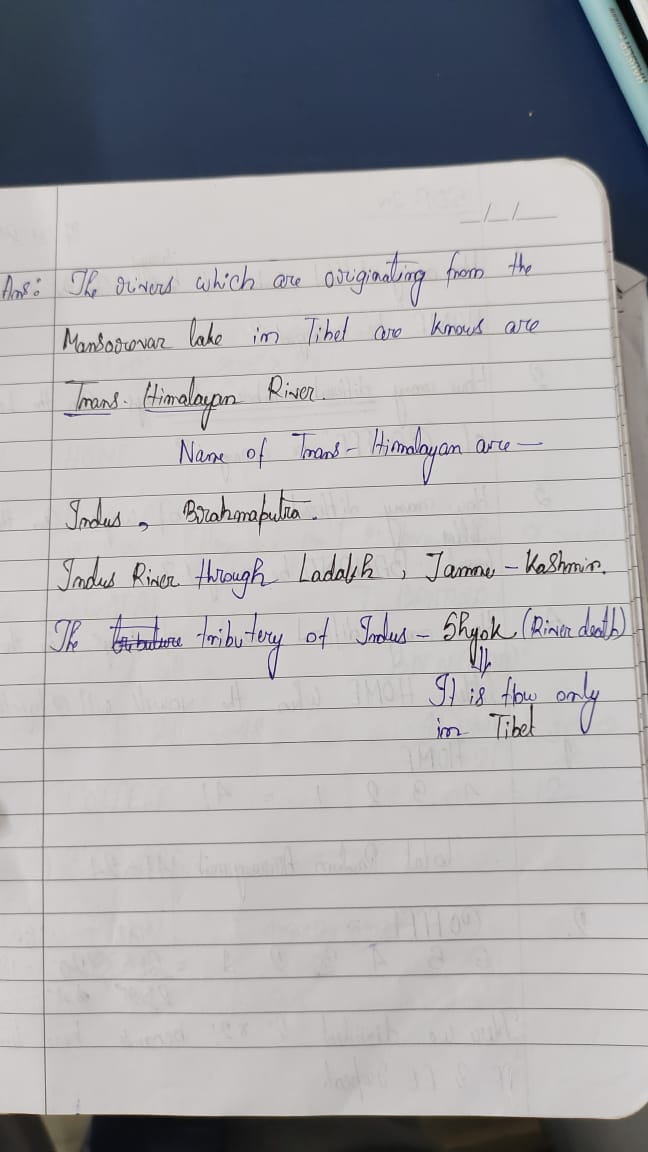 _/_/_
Ans: The rivers which are originating from the
Mansoorovar lake in Tibet are knows are
Trans. Himalayan River.
Name of Trans - Himalayan are —
Indus, Brahmaputra.
Indus River through Ladakh, Jammu - Kashmir.
The tributure tributery of Indus - Shyok (River death)
It is flow only
in Tibet